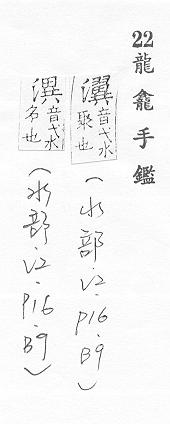 22龍龕手鑑
瀷音弋水聚也
(水部.V2.P16.B9)
潩音弋水名也
(水部.V2.P16.B9)